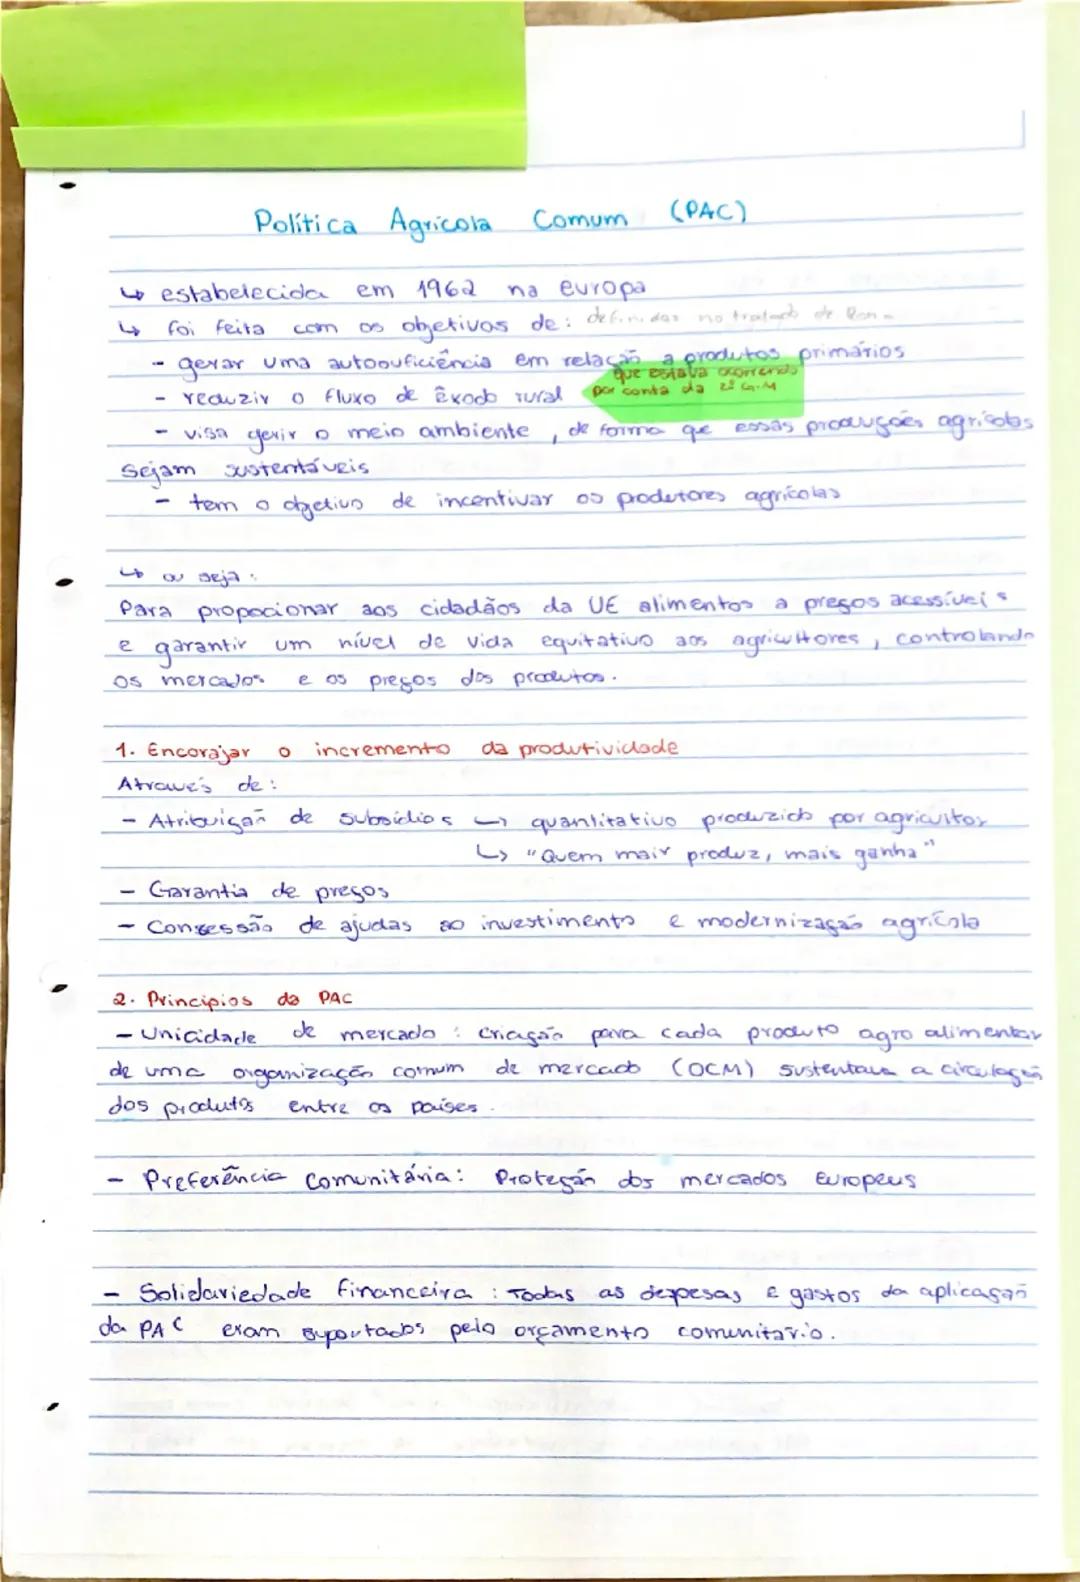 Política Agrícola Comum (PAC)
↳ estabelecida em 1962 na europa
↳ foi feita com os objetivos de: definidas no tratado de Roma
- gerar uma autosuficiência em relação a produtos primários
- reduzir o fluxo de êxodo rural
que estava ocorrendo
por conta da 2ª G.M
- visa gerir o meio ambiente, de forma que essas produções agrícolas
sejam sustentáveis
- tem o objetivo de incentivar os produtores agrícolas
↳ ou seja:
Para propocionar aos cidadãos da UE alimentos a preços acessíveis
e garantir um nível de vida equitativo aos agricultores, controlando
os mercados e os preços dos produtos.
1. Encorajar o incremento da produtividade
Através de:
- Atribuição de subsídios ↳ quantitativo produzido por agricultor
↳ "Quem mair produz, mais ganha"
- Garantia de preços
- Consessão de ajudas ao investimento e modernização agrícola
2. Princípios da PAC
- Unicidade de mercado: criação para cada produto agro alimentar
de uma organização comum de mercado (OCM) sustentava a circulação
dos produtos entre os países.
- Preferência Comunitária: Proteção dos mercados Europeus
- Solidariedade financeira: Todas as despesas e gastos da aplicação
da PAC eram suportados pelo orçamento comunitário.